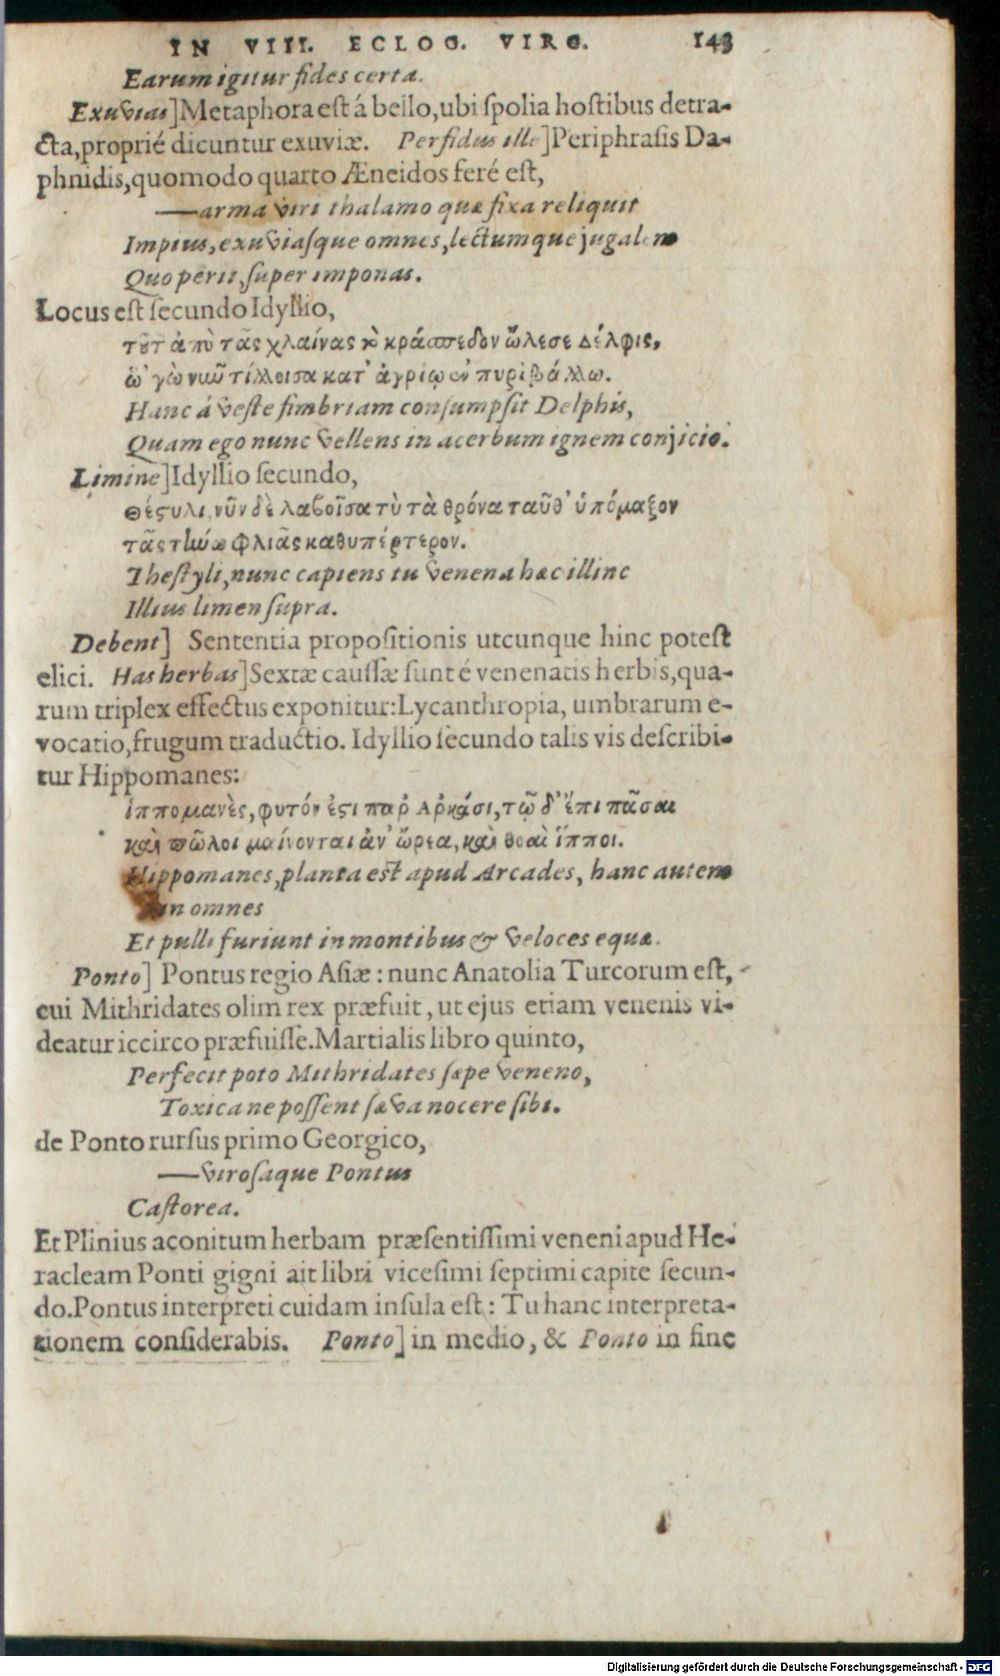 IN VIII. ECLOG. VIRG. 143
Earum igitur fides certa.
Exuvias] Metaphora est á bello, ubi spolia hostibus detra-
cta, proprié dicuntur exuviæ. Perfidus ille] Periphrasis Da-
phnidis, quomodo quarto Æneidos feré est,
—arma viri thalamo quæ fixa reliquit
Impius, exuviasque omnes, lectumque jugalem
Quo perii, super imponas.
Locus est secundo Idyllio,
τοῦτ' ἀπὸ τᾶς χλαίνας τὸ κράσπεδον ὤλεσε Δέλφις,
ὣ 'γὼ νῦν τίλλοισα κατ' ἀγρίῳ ἐν πυρὶ βάλλω.
Hanc á veste fimbriam consumpsit Delphis,
Quam ego nunc vellens in acerbum ignem conjicio.
Limine] Idyllio secundo,
Θέστυλι, νῦν δὲ λαβοῖσα τὺ τὰ θρόνα ταῦθ' ὑπόμαξον
τᾶς τήνω φλιᾶς καθυπέρτερον.
Thestyli, nunc capiens tu venena hæc illinc
Illius limen supra.
Debent] Sententia propositionis utcunque hinc potest
elici. Has herbas] Sextæ caussæ sunt é venenatis herbis, qua-
rum triplex effectus exponitur: Lycanthropia, umbrarum e-
vocatio, frugum traductio. Idyllio secundo talis vis describi-
tur Hippomanes:
ἱππομανὲς, φυτόν ἐστι παρ' Ἀρκάσι, τῷ δ' ἔπι πᾶσαι
καὶ πῶλοι μαίνονται ἀν' ὤρεα, καὶ θοαὶ ἵπποι.
Hippomanes, planta est apud Arcades, hanc autem
omnes
Et pulli furiunt in montibus & veloces equæ.
Ponto] Pontus regio Asiæ: nunc Anatolia Turcorum est,
cui Mithridates olim rex præfuit, ut ejus etiam venenis vi-
deatur iccirco præfuisse. Martialis libro quinto,
Perfecit poto Mithridates sæpe veneno,
Toxica ne possent sæva nocere sibi.
de Ponto rursus primo Georgico,
—virosaque Pontus
Castorea.
Et Plinius aconitum herbam præsentissimi veneni apud He-
racleam Ponti gigni ait libri vicesimi septimi capite secun-
do. Pontus interpreti cuidam insula est: Tu hanc interpreta-
tionem considerabis. Ponto] in medio, & Ponto in fine
Digitalisierung gefördert durch die Deutsche Forschungsgemeinschaft - DFG